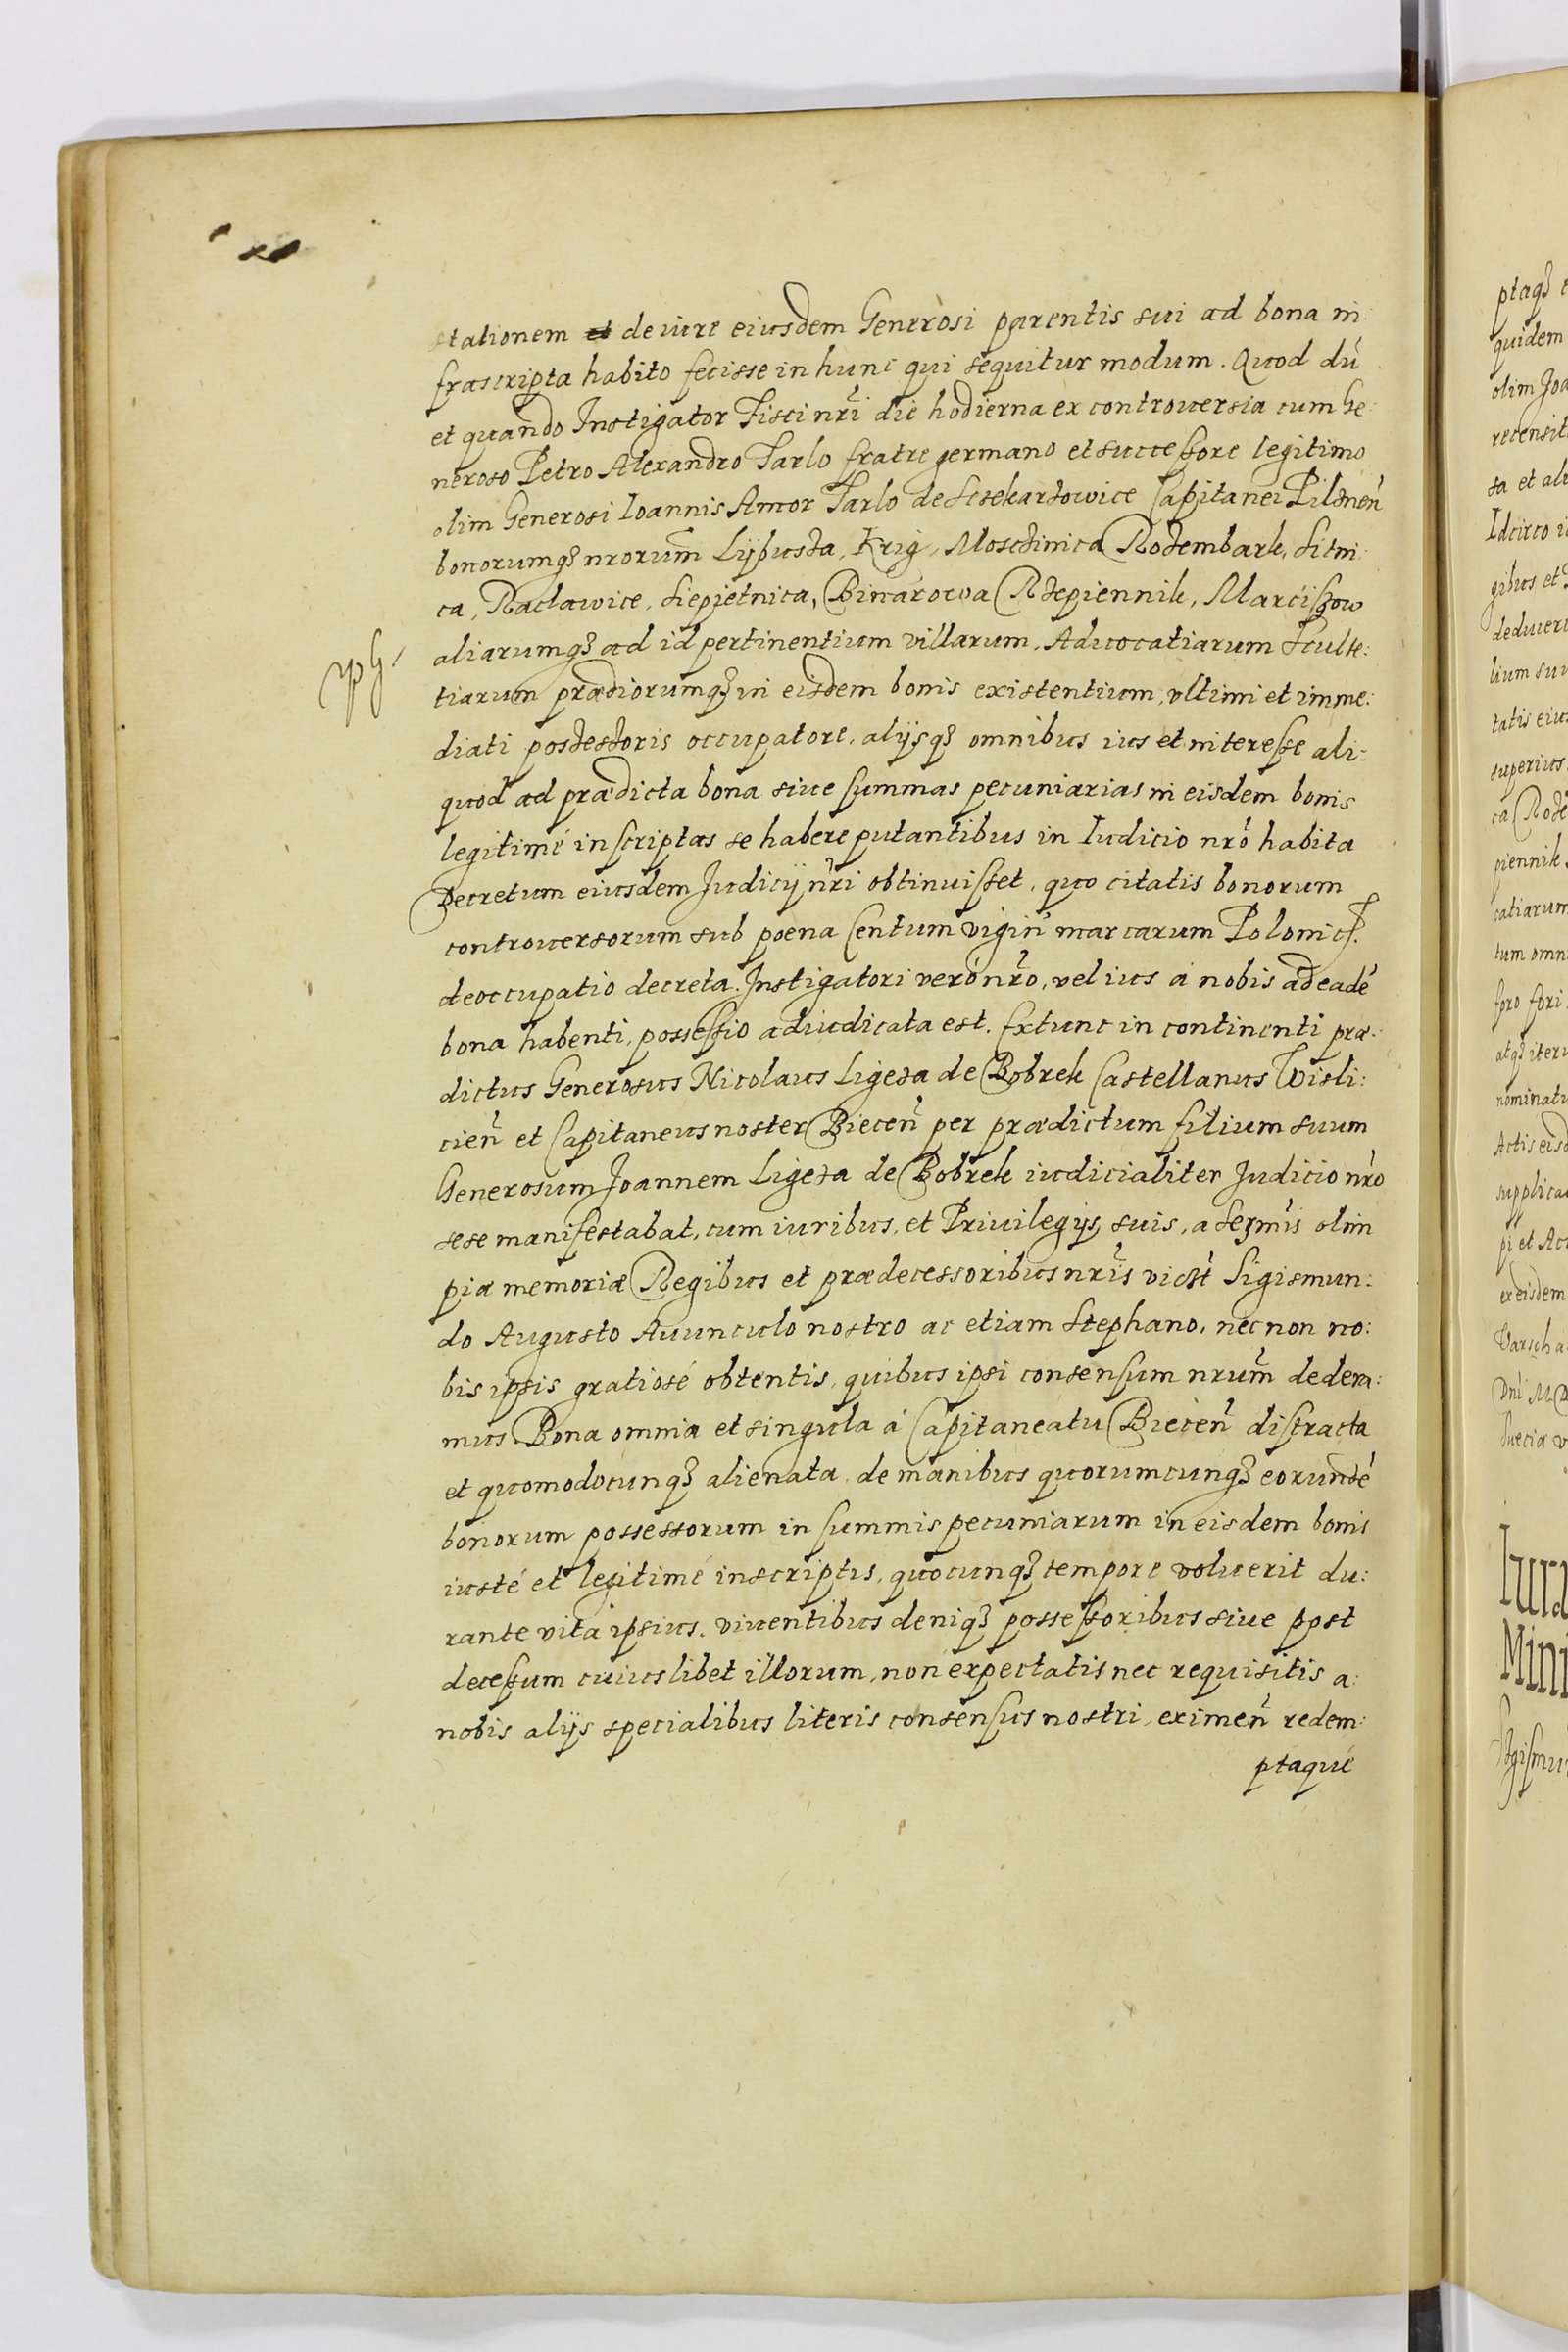 stationem de iure eiusdem Generosi parentis sui ad bona in:
frascripta habito fecisse in hunc qui sequitur modum. Quod dũ
et quando Instigator Fisci nr̃i die hodierna ex controuersia cum Ge:
neroso Petro Alexandro Tarlo fratre germano et successore legitimo
olim Generosi Ioannis Amor Tarlo de Capitanei Pilznen̄
bonorumq₃ nrorum̃ Lipusza, Krig, Mosczinica Rozembark, Sitni:
ca, Raclawice, Siepietnica, Binarowa Rzepiennik, Marciszow
aliarumq₃ ad id pertinentium villarum, Aduocatiarum Sculte:
tiarum prædiorumq₃ in eisdem bonis existentium, vltimi et imme:
diati possessoris occupatore, alijsq₃ omnibus ius et interesse ali:
quod ad prædicta bona siue summas pecuniarias in eisdem bonis
legitimé inscriptas se habere putantibus in Iudicio nrõ habita
Decretum eiusdem Judicij nr̃i obtinuisset, quo citatis bonorum
controuersorum sub poena Centum vigin̄ marcarum Polonic.
deoccupatio decreta. Instigatori veró nr̃o, vel ius á nobis ad eadẽ
bona habenti, possessio adiudicata est. Extunc in continenti præ:
dictus Generosus Nicolaus Ligeza de Bobrek Castellanus Wisli:
cien̄ et Capitaneus noster Biecen̄ per prædictum filium suum
Generosum Joannem Ligeza de Bobrek iudicialiter Judicio nr̃o
sese manifestabat, cum iuribus, et Priuilegijs suis, a Serm̃is olim
piæ memoriæ Regibus et prædecessoribus nr̃is vict Sigismun:
do Augusto Auunculo nostro ac etiam Stephano, nec non no:
bis ipsis gratiosé obtentis, quibus ipsi consensum nrum̃ dedera:
mus. Bona omnia et singula á Capitaneatu Biecen̄ distracta
et quomodocunq₃ alienata de manibus quorumcunq₃ eorundẽ
bonorum possessorum in summis pecuniarum in eisdem bonis
iusté et legitimé inscriptis, quocunq₃ tempore voluerit du:
rante vita ipsius, viuentibus deniq₃ possessoribus siue post
decessum cuiuslibet illorum, non expectatis nec requisitis a
nobis alijs specialibus literis consensus nostri, eximen̄ redem:
ptaque